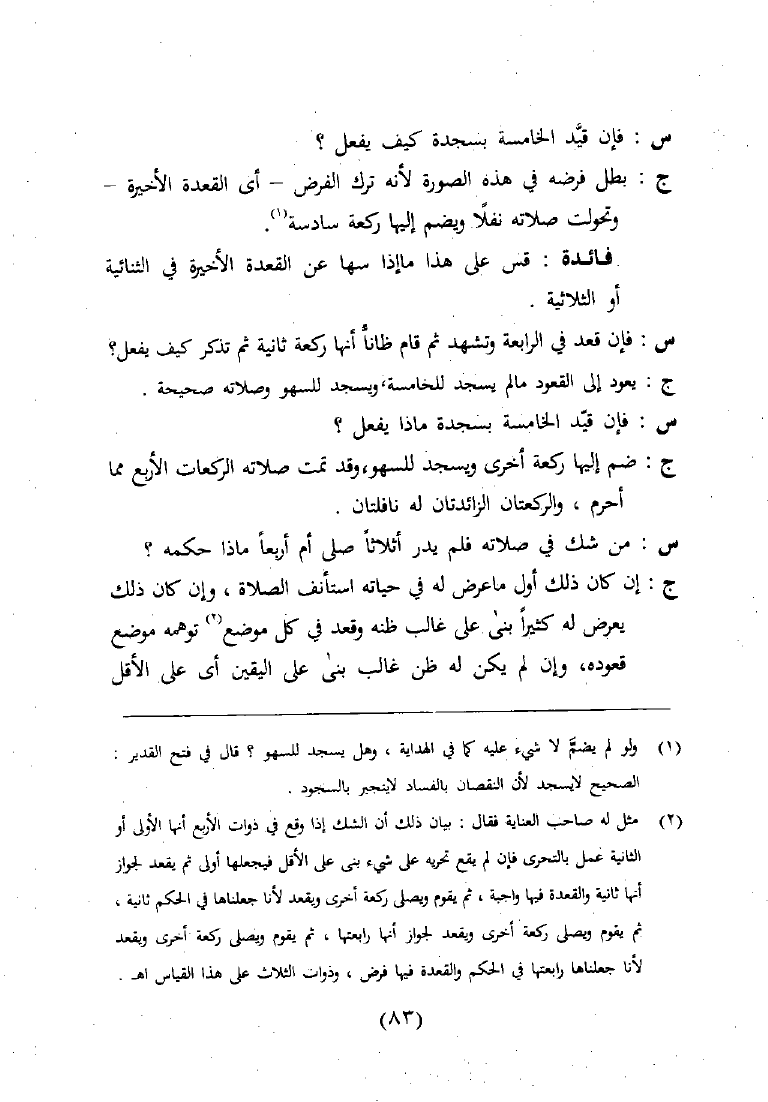 س : فإن قيَّد الخامسة بسجدة كيف يفعل ؟
ج : بطل فرضه في هذه الصورة لأنه ترك الفرض – أى القعدة الأخيرة –
وتحولت صلاته نفلًا ويضم إليها ركعة سادسة(١).
فـائـدة : قس على هذا ماإذا سها عن القعدة الأخيرة في الثنائية
أو الثلاثية .
س : فإن قعد في الرابعة وتشهد ثم قام ظاناً أنها ركعة ثانية ثم تذكر كيف يفعل؟
ج : يعود إلى القعود مالم يسجد للخامسة، ويسجد للسهو وصلاته صحيحة .
س : فإن قيّد الخامسة بسجدة ماذا يفعل ؟
ج : ضم إليها ركعة أخرى ويسجد للسهو، وقد تمت صلاته الركعات الأربع مما
أحرم ، والركعتان الزائدتان له نافلتان .
س : من شك في صلاته فلم يدر أثلاثاً صلى أم أربعاً ماذا حكمه ؟
ج : إن كان ذلك أول ماعرض له في حياته استأنف الصلاة ، وإن كان ذلك
يعرض له كثيراً بنىٰ على غالب ظنه وقعد في كل موضع(٢) توهمه موضع
قعوده، وإن لم يكن له ظن غالب بنىٰ على اليقين أى على الأقل
(١) ولو لم يضمَّ لا شيء عليه كما في الهداية ، وهل يسجد للسهو ؟ قال في فتح القدير :
الصحيح لايسجد لأن النقصان بالفساد لاينجبر بالسجود .
(٢) مثل له صاحب العناية فقال : بيان ذلك أن الشك إذا وقع في ذوات الأربع أنها الأولى أو
الثانية عمل بالتحرى فإن لم يقع تحريه على شيء بنى على الأقل فيجعلها أولى ثم يقعد لجواز
أنها ثانية والقعدة فيها واجبة ، ثم يقوم ويصلى ركعة أخرى ويقعد لأنا جعلناها في الحكم ثانية ،
ثم يقوم ويصلى ركعة أخرى ويقعد لجواز أنها رابعتها ، ثم يقوم ويصلى ركعة أخرى ويقعد
لأنا جعلناها رابعتها في الحكم والقعدة فيها فرض ، وذوات الثلاث على هذا القياس اهـ .
(٨٣)